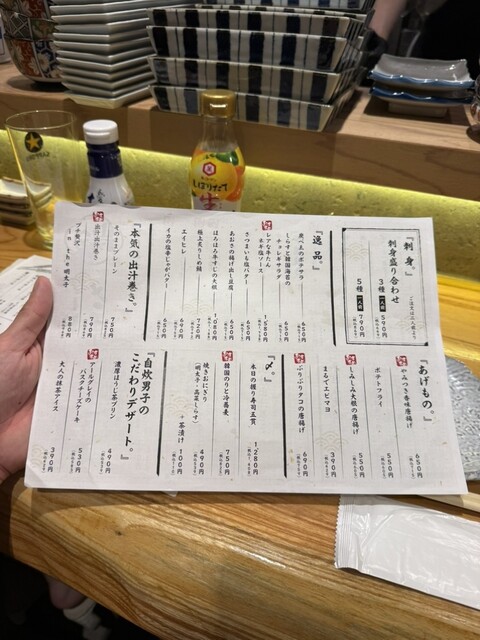 『刺身。』
刺身盛り合わせ
ご注文は二人前より
3種 一人前 590円
5種 一人前 790円
『逸品。』
食べるのポテサラ
650円
しらすと韓国海苔の
チョレギサラダ
650円
レアな牛たん
ネギ塩ソース
1280円
さつまいも塩バター
650円
あおさの揚げ出し豆腐
650円
ほろほろ牛すじの大根
1080円
極上炙りしめ鯖
720円
エイヒレ
690円
イカの塩辛じゃがバター
650円
『本気の出汁巻き。』
そのままプレーン
750円
出汁出汁巻き
790円
プチ贅沢
in the 明太子
880円
『あげもの。』
やみつき香味唐揚げ
650円
ポテトフライ
550円
しみしみ大根の唐揚げ
550円
まるでエビマヨ
390円
ぷりぷりタコの唐揚げ
690円
『〆。』
本日の握り寿司五貫
1280円
韓国のりと冷蕎麦
750円
焼きおにぎり
(明太子・高菜・しらす)
490円
+茶漬け
100円
『自炊男子の
こだわりデザート。』
濃厚ほうじ茶プリン
490円
アールグレイの
バスクチーズケーキ
530円
大人の抹茶アイス
390円
しぼりたて
生